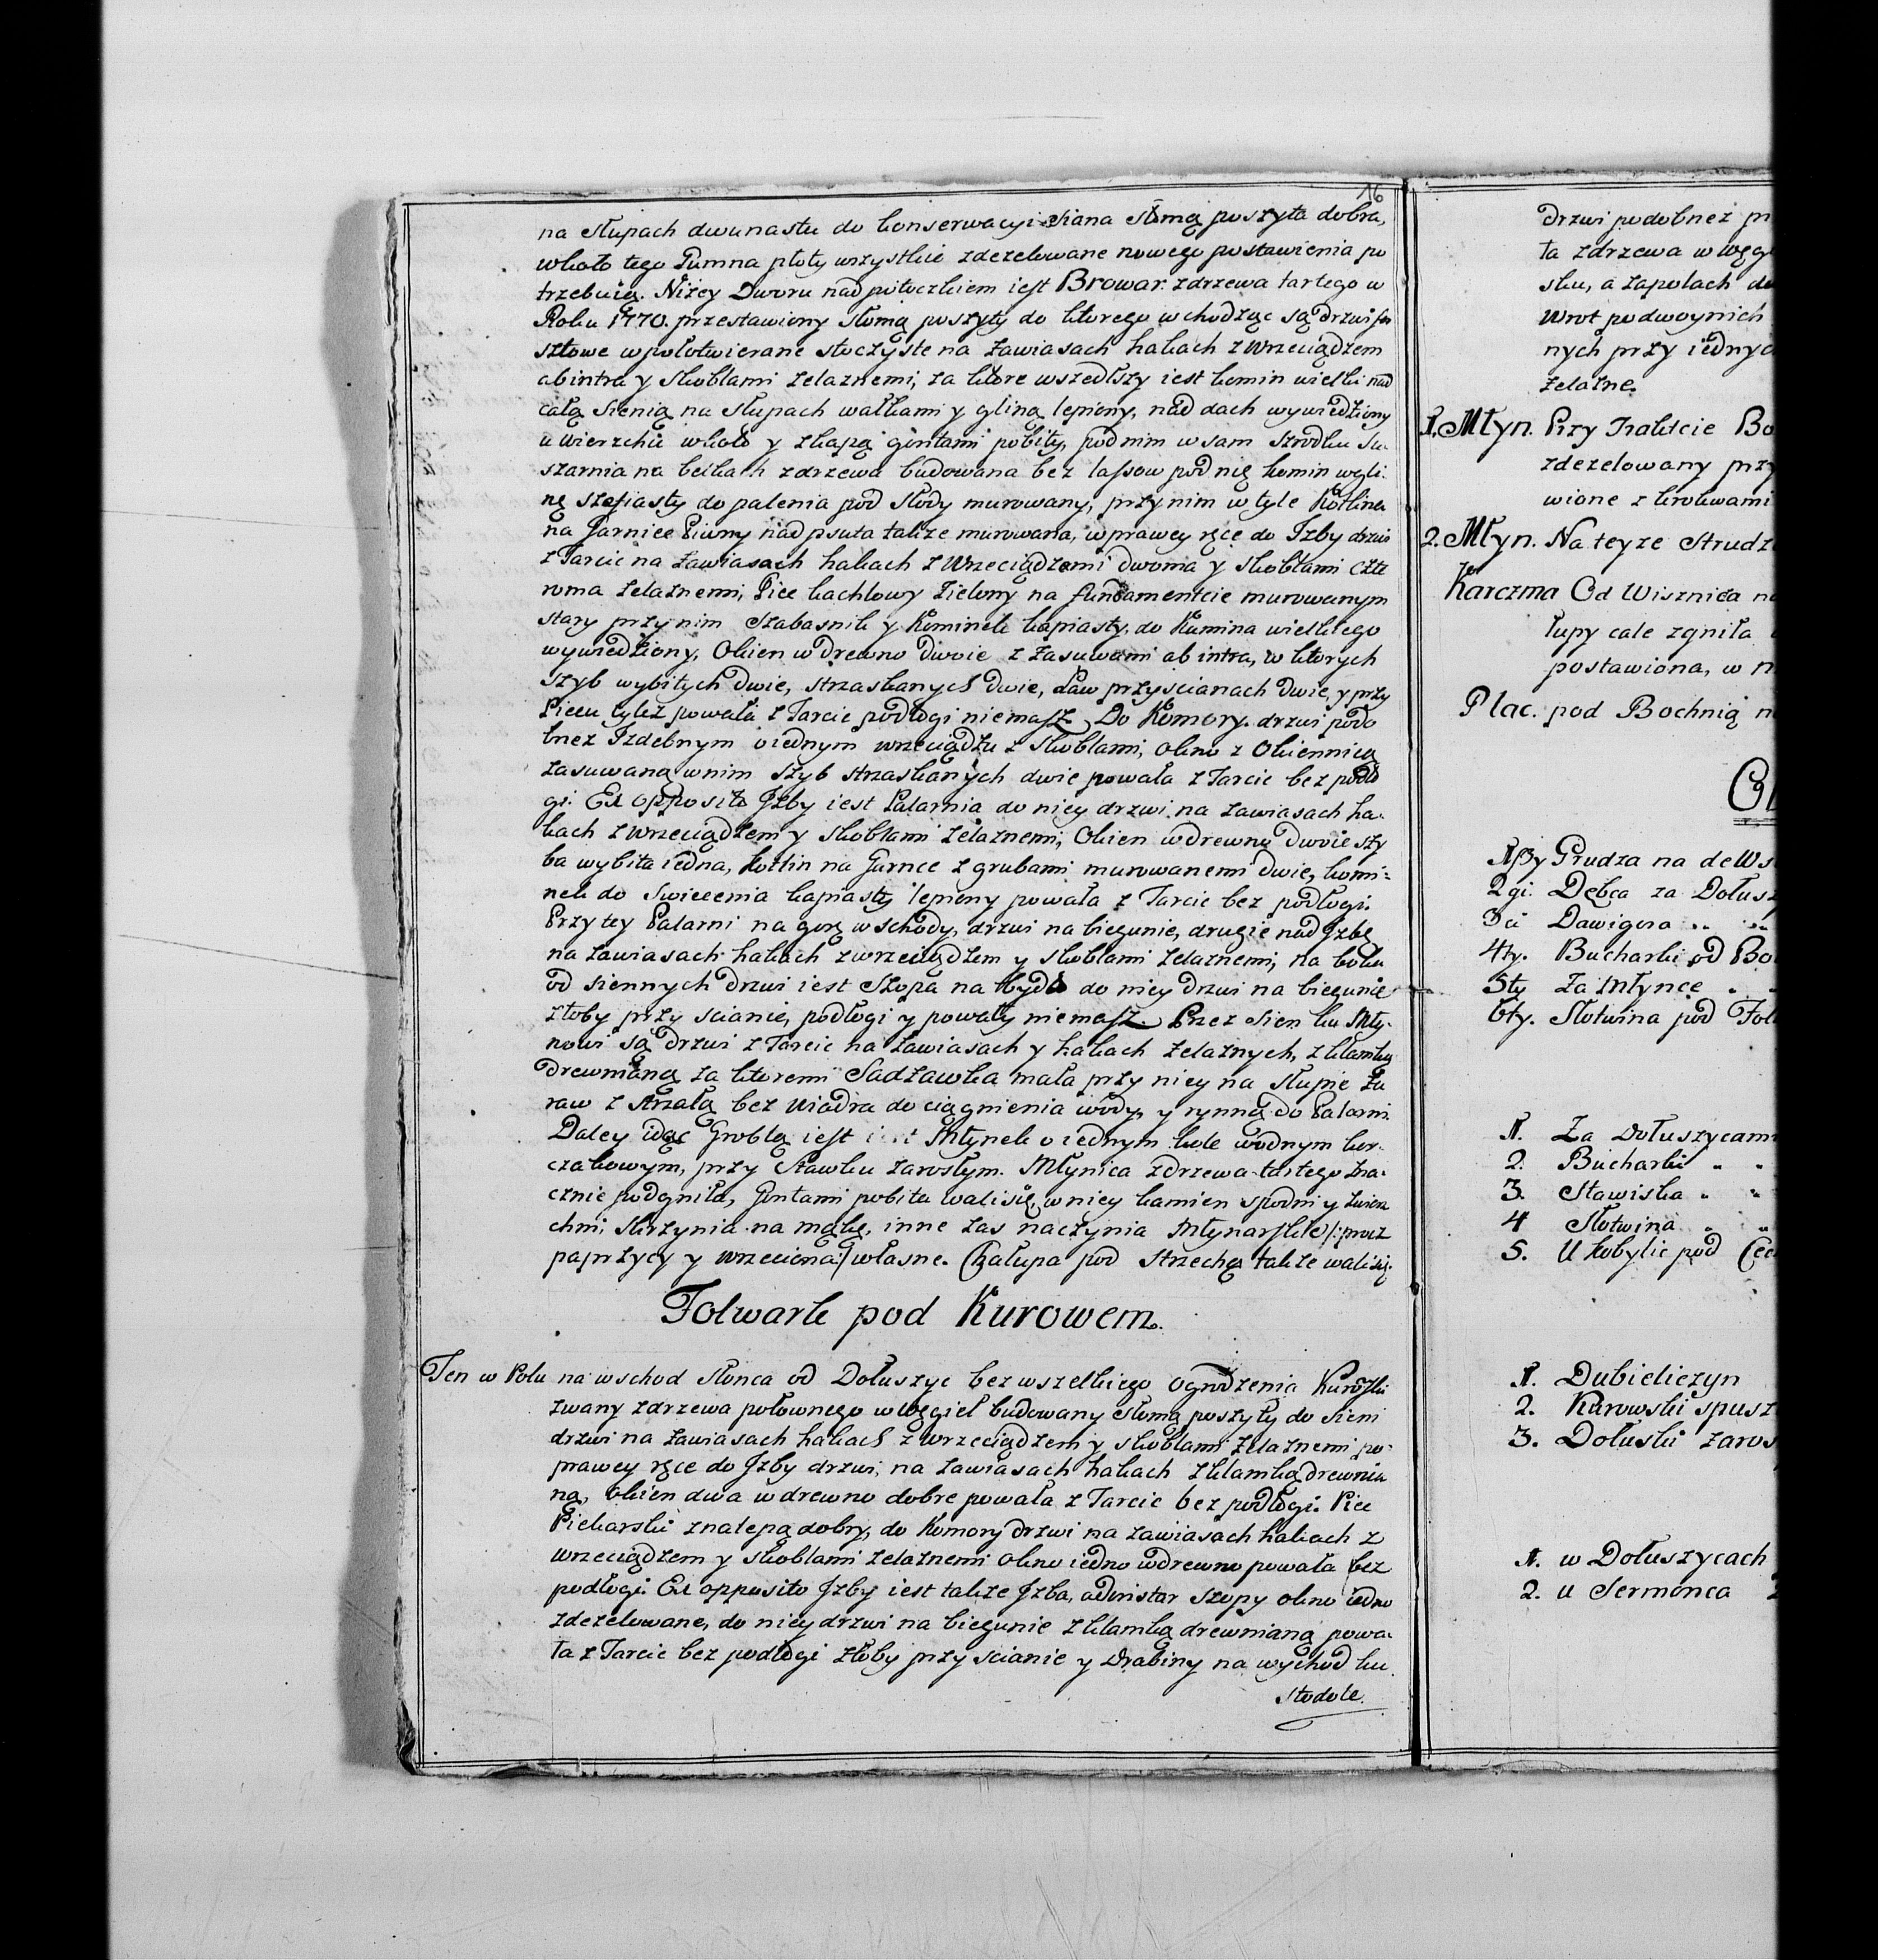 16
na słupach dwunastu do konserwacyi siana słomą poszyta dobra,
wkoło tego Gumna płoty wszystkie zdezelowane nowego postawienia po
trzebuią. Niżey Dworu nad potoczkiem iest Browar z drzewa tartego w
Roku 1770. przestawiony słomą poszyty do ktorego wchodząc są drzwi fo
sztowe wpołotwierane stoczyste na zawiasach hakach z wrzeciądzem
ab intra y skoblami żelaznemi, za ktore wszedłszy iest komin wielki nad
całą sienią na słupach wałkami y gliną lepiony, nad dach wywiedziony
u wierzchu wkoło y z kapą gontami pobity, pod nim w sam szrodku su
szarnia na belkach z drzewa budowana bez lassow pod nię komin w gli
nę szefiasty do palenia pod słody murowany, przy nim w tyle Kotlina
na Garniec Piwny nadpsuta także murowana, w prawey ręce do Izby drzwi
z Tarcic na zawiasach hakach z wrzeciądzami dwoma y skoblami czte
roma żelaznemi, Piec kachlowy zielony na fundamencie murowanym
stary przy nim Szabasnik y Kominek kapiasty do Kumina wielkiego
wywiedziony, Okien w drewno dwoie z zasuwami ab intra, w ktorych
szyb wybitych dwie, strzaskanych dwie, Ław przy scianach dwie, y przy
Piecu tyleż powała z Tarcic podłogi niemasz. Do Komory drzwi podo
bnez Izdebnym o iednym wrzeciądzu z skoblami, okno z Okiennicą
zasuwaną w nim szyb strzaskanych dwie powała z Tarcic bez podło
gi. Ex opposito Izby iest Palarnia do niey drzwi na zawiasach ha
kach z wrzeciądzem y skoblami żelaznemi, Okien w drewno dwoie szy
ba wybita iedna, kotlin na Garnce z grubami murowanemi dwie, komi=
nek do swiecenia kapiasty lepiony powała z Tarcic bez podłogi.
Przy tey Palarni na gorę wschody, drzwi na biegunie, drugie nad Izbę
na zawiasach hakach z wrzeciądzem y skoblami żelaznemi, na boku
od siennych drzwi iest Szopa na bydło do niey drzwi na biegunie
złoby przy scianie, podłogi y powały niemasz. Przez Sien ku Mły
nowi są drzwi z Tarcic na zawiasach y hakach żelaznych, z klamką
drewnianą za ktoremi Sadzawka mała przy niey na słupie Żu
raw z strzałą bez wiadra do ciągnienia wody, y rynną do Palarni.
Daley idąc Groblą iest Młynek o iednym kole wodnym kor
czakowym, przy stawku zarosłym. Młynica z drzewa tartego zna
cznie podgniła, Gontami pobita wali się, w niey kamien spodni y zwierz
chni, Skrzynia na mąkę, inne zas naczynia Młynarskie /: procz
paprzycy y wrzeciona :/ własne. Chałupa pod strzechą także wali się.
Folwark pod Kurowem.
Ten w Polu na wschod słonca od Dołuszyc bez wszelkiego ogrodzenia Kurowski
zwany z drzewa połownego w węgieł budowany słomą poszyty do sieni
drzwi na zawiasach hakach z wrzeciądzem y skoblami żelaznemi po
prawey ręce do Izby drzwi, na zawiasach hakach z klamką drewnia
ną, okien dwa w drewno dobre powała z Tarcic bez podłogi. Piec
Piekarski z nalepą dobry, do Komory drzwi na zawiasach hakach z
wrzeciądzem y skoblami żelaznemi okno iedno w drewno powała bez
podłogi. Ex opposito Izby iest także Izba, ad instar szopy okno iedno
zdezelowane, do niey drzwi na biegunie z klamką drewnianą powa
ła z Tarcic bez podłogi złoby przy scianie y Drabiny na wychod ku
stodole.
drzwi podobnez
ta z drzewa w
sku, a zapolach
wrot podwoynich
nych przy
żelazne.
1. Młyn. Przy Trakcie
zdezelowany przy
wione z krokwami
2. Młyn. Na teyze
Karczma Od Wisznica
łupy cale zgniła
postawiona, w
Plac. pod Bochnią
1szy Grudza na
2gi. Dębca za
3ci Dawigora
4ty. Bucharki od
5ty Za Młynce
6ty. Słotwina pod
1. Za Dołuszycami
2. Bucharki
3. Stawiska
4 Słotwina
5. U kobylic pod
1. Dubieliczyn
2. Kurowski
3. Dołuski
1. w Dołuszycach
2. u Sermonca